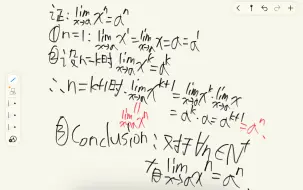 证: lim x→a xⁿ = aⁿ
① n=1: lim x→a x¹ = lim x→a x = a = a¹
② 设n=k时 lim x→a xᵏ = aᵏ
∴ n=k+1时 lim x→a xᵏ⁺¹ = lim x→a xᵏ · lim x→a x
= aᵏ · a = aᵏ⁺¹ = aⁿ
lim x→a xⁿ
③ Conclusion: 对于∀n∈N⁺
有 lim x→a xⁿ = aⁿ